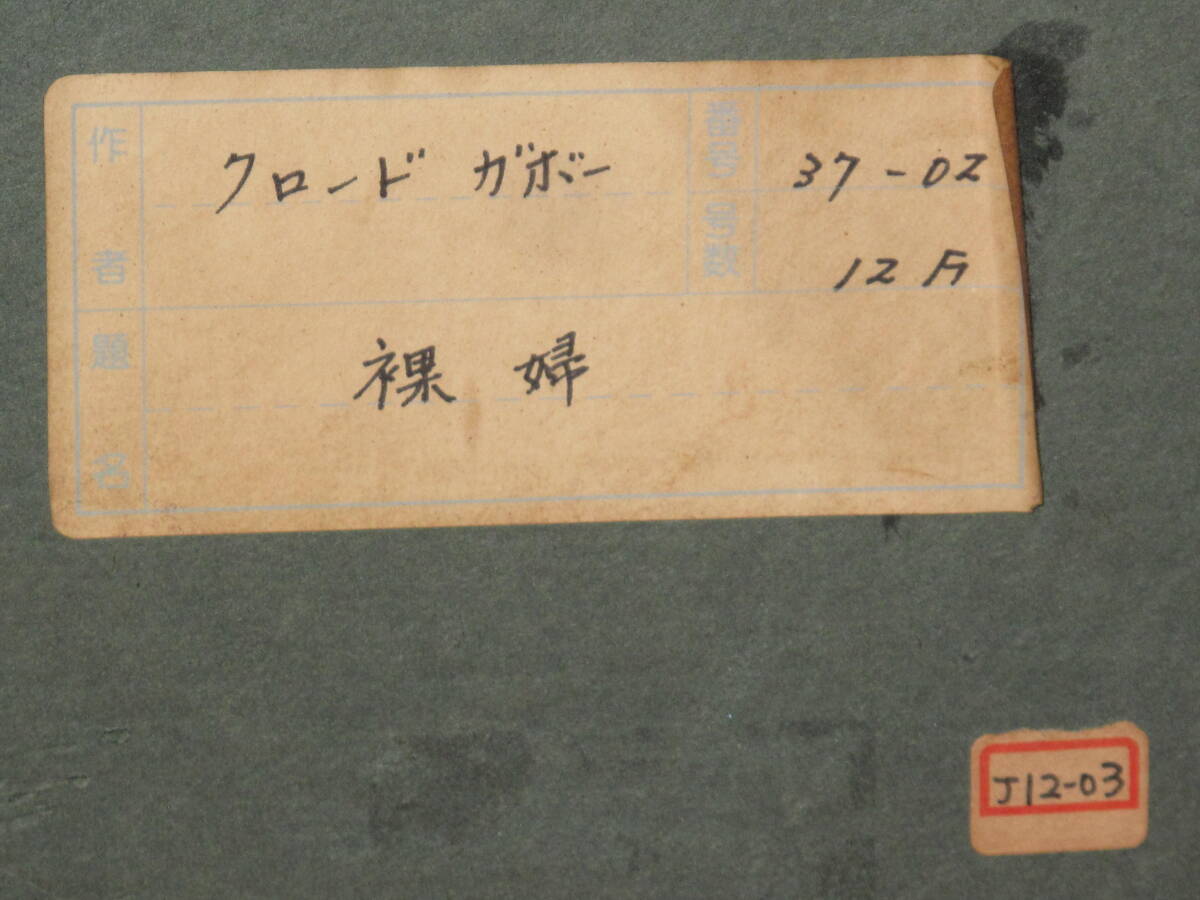 作者
クロード ガボー
番号
37-02
号数
12F
題名
裸婦
J12-03